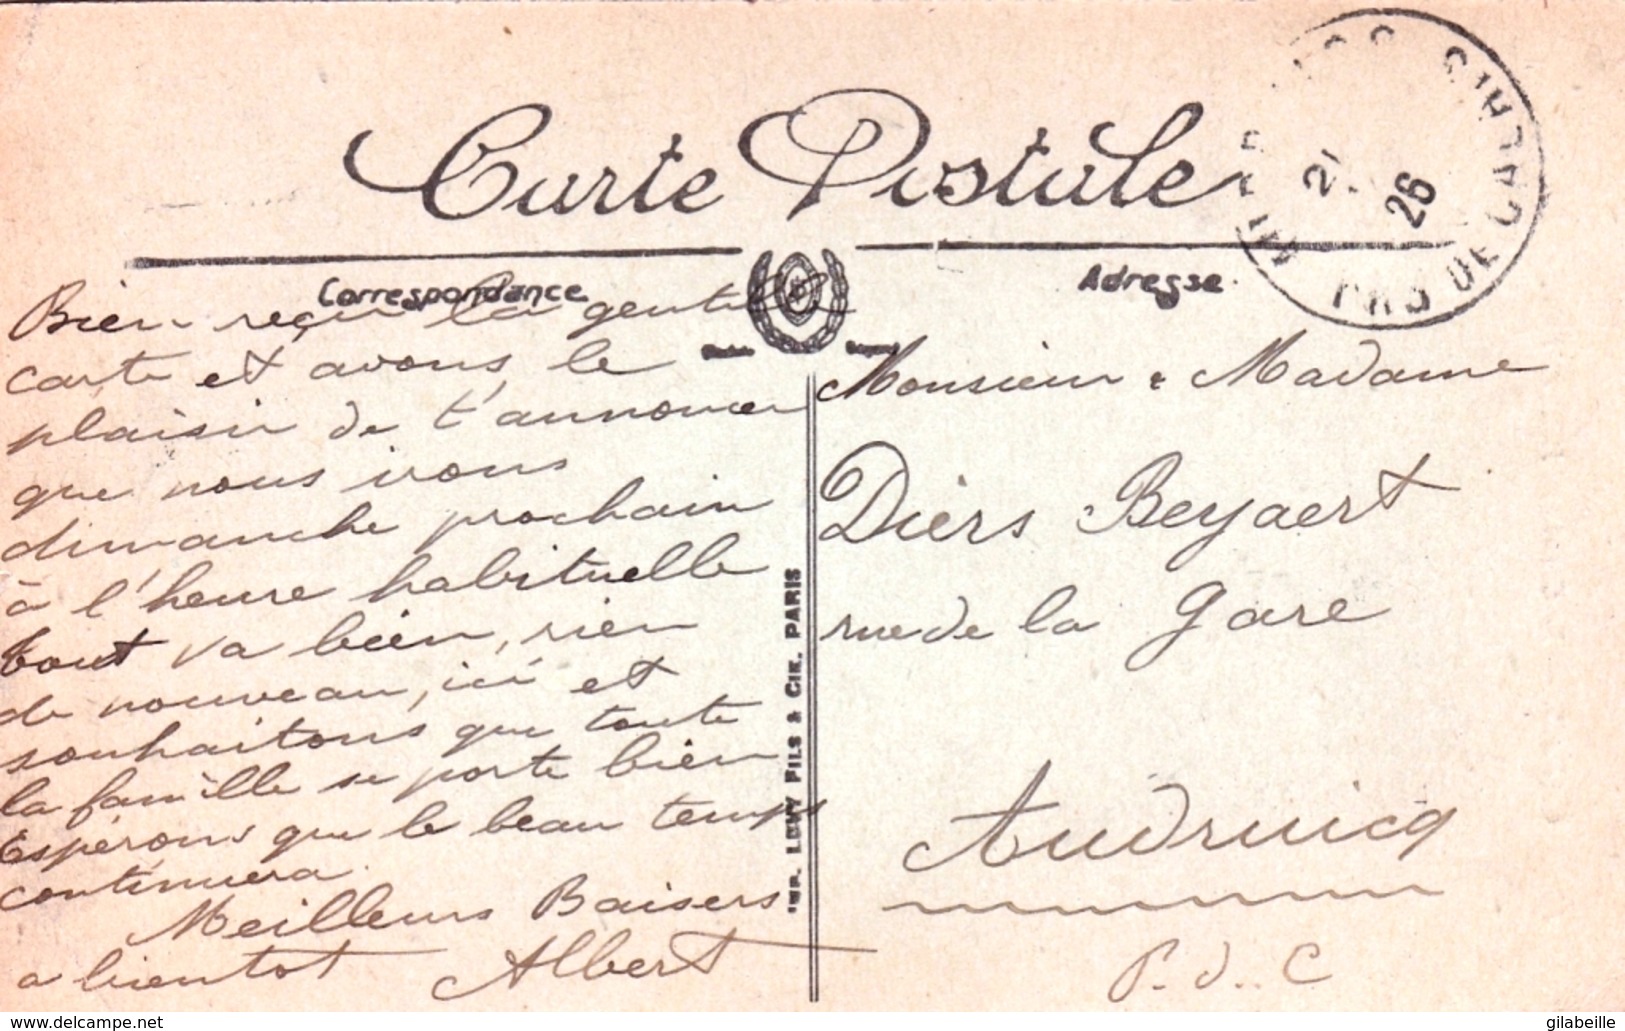 Carte Postale
Correspondance
Adresse
21
26
PAS DE CALAIS
Bien reçu la gentille
carte et avons le
plaisir de t'annoncer
que nous irons
dimanche prochain
à l'heure habituelle
tout va bien, rien
de nouveau, ici et
souhaitons que toute
la famille se porte bien
Espérons que le beau temps
continuera.
Meilleurs Baisers
a bientot Albert
IMP. LEVY FILS & CIE. PARIS
Monsieur & Madame
Diers Beyaert
rue de la Gare
Audruicq
P. d. C
www.delcampe.net
gilabeille